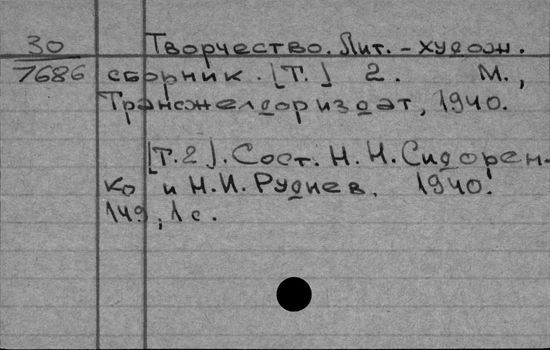 30 Творчество. Лит. - худож.
7686 сборник. [Т.] 2. М.,
Трансжелдориздат, 1940.
[Т. 2]. Сост. Н. Н. Сидорен-
ко и Н. И. Руднев. 1940.
149, 1 с.